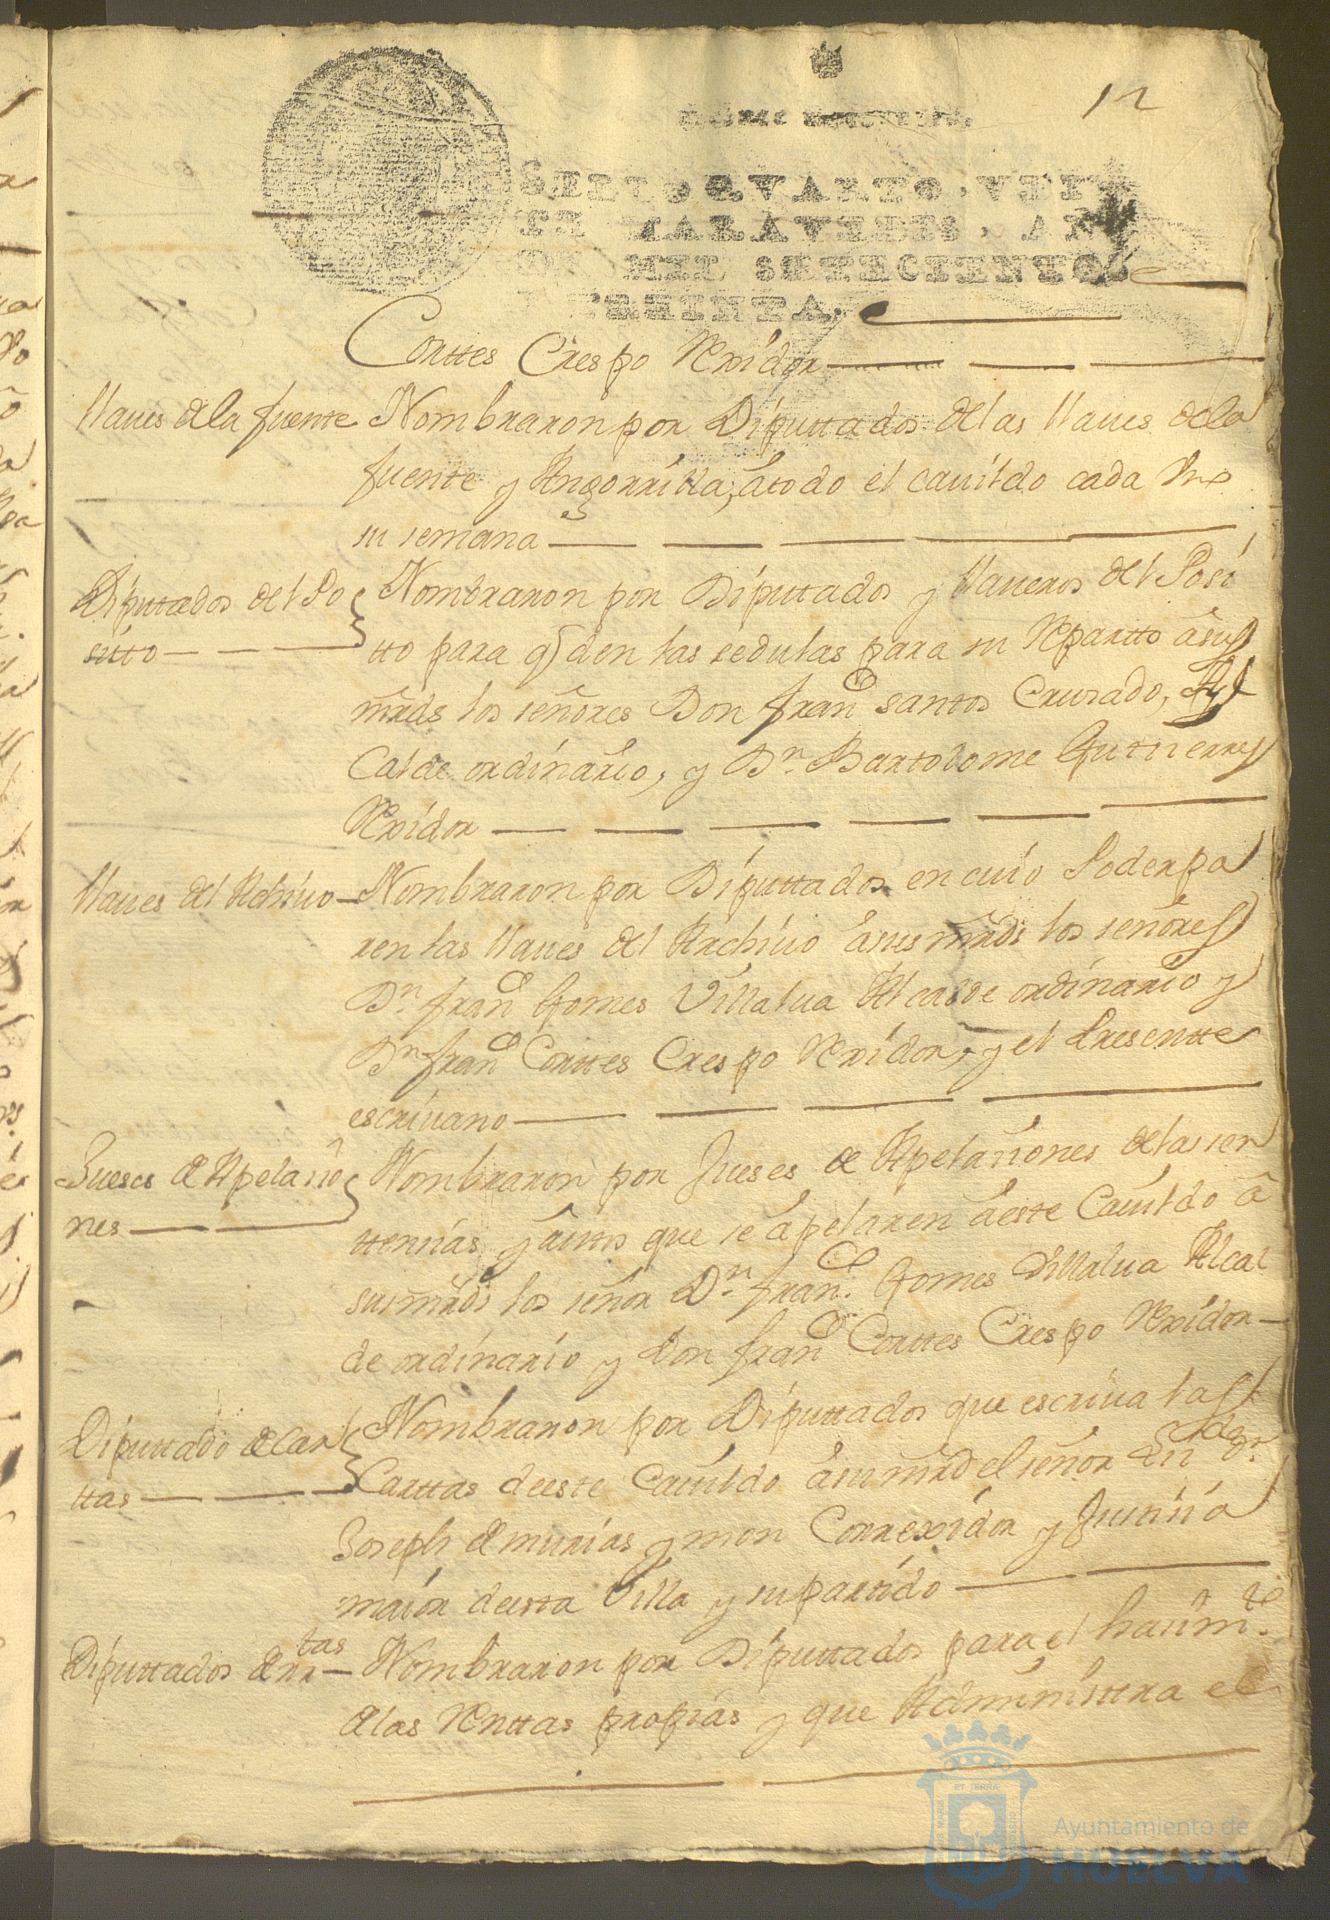 12
SELLO QVARTO, VEIN
TE MARAVEDIS, AÑO
DE MIL SETECIENTOS
TREINTA.
Corttes Crespo Rexidor
llaues de la fuente
Nombraron por Diputtados de las llaues de la
fuente y Angorrilla, a todo el cauildo cada Vno
su semana
Diputados del Po
sitto
Nombraron por Diputtados y llaueros del Posi
tto para q den las sedulas para su Repartto a sus
mrds los señores Don franco santos Crusado, Al
Calde ordinario, y Dn. Bartolome Gutierres
Rexidor
llaues del Rchiuo
Nombraron por Diputtados en cuio Poder pa
ren las llaues del Archiuo a sus mrds los señores
Dn franco Gomes Villalua Alcalde ordinario y
Dn franco Corttes Crespo Rexidor, y el Presentte
escriuano
Jueses de Apelazio
nes
Nombraron por Jueses de Apelaziones de las sen
ttenzias y auttos que se apelaren a este Cauildo a
sus mrds los señor Dn. franco. Gomes Villalua Alcal
de ordinario y Don franco Corttes Crespo Rexidor
Diputtado de Car
ttas
Nombraron por Diputtados que escriua las
Carttas deeste Cauildo a su mrd el señor Lizdo Dn.
Joseph de murias y mon Correxidor y Justizia
maior deesta Villa y su partido
Diputtados de Rentas
Nombraron por Diputtados para el hazimto.
de las Renttas propias y que Administtra el
Ayuntamiento de
HUELVA